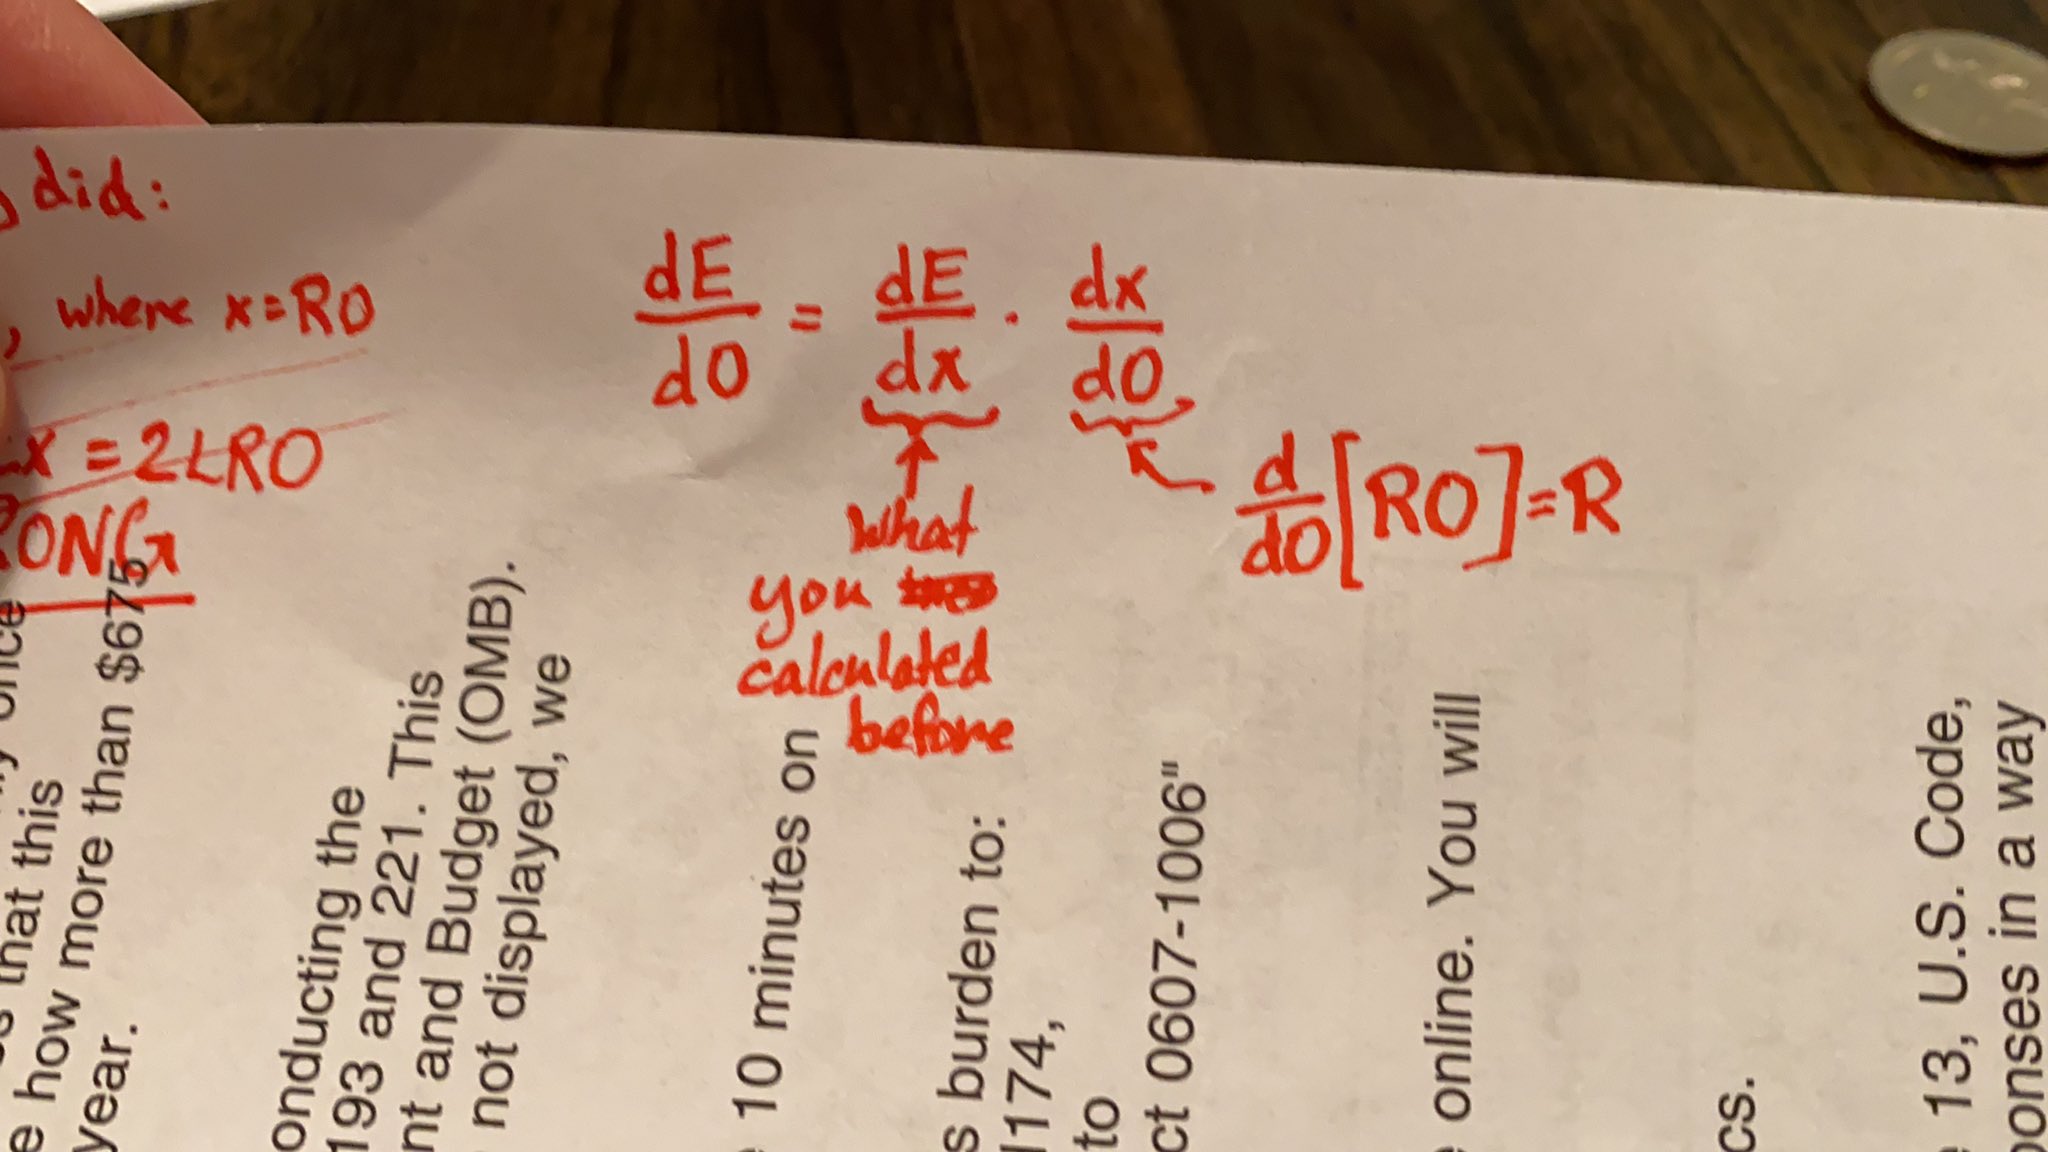 did:
, where x=RO
x = 2LRO
ONG
dE/dO = dE/dx · dx/dO
d/dO [RO] = R
what
you
calculated
before
once
that this
how more than $675
year.
onducting the
193 and 221. This
nt and Budget (OMB).
not displayed, we
10 minutes on
s burden to:
174,
to
ct 0607-1006"
online. You will
cs.
13, U.S. Code,
onses in a way